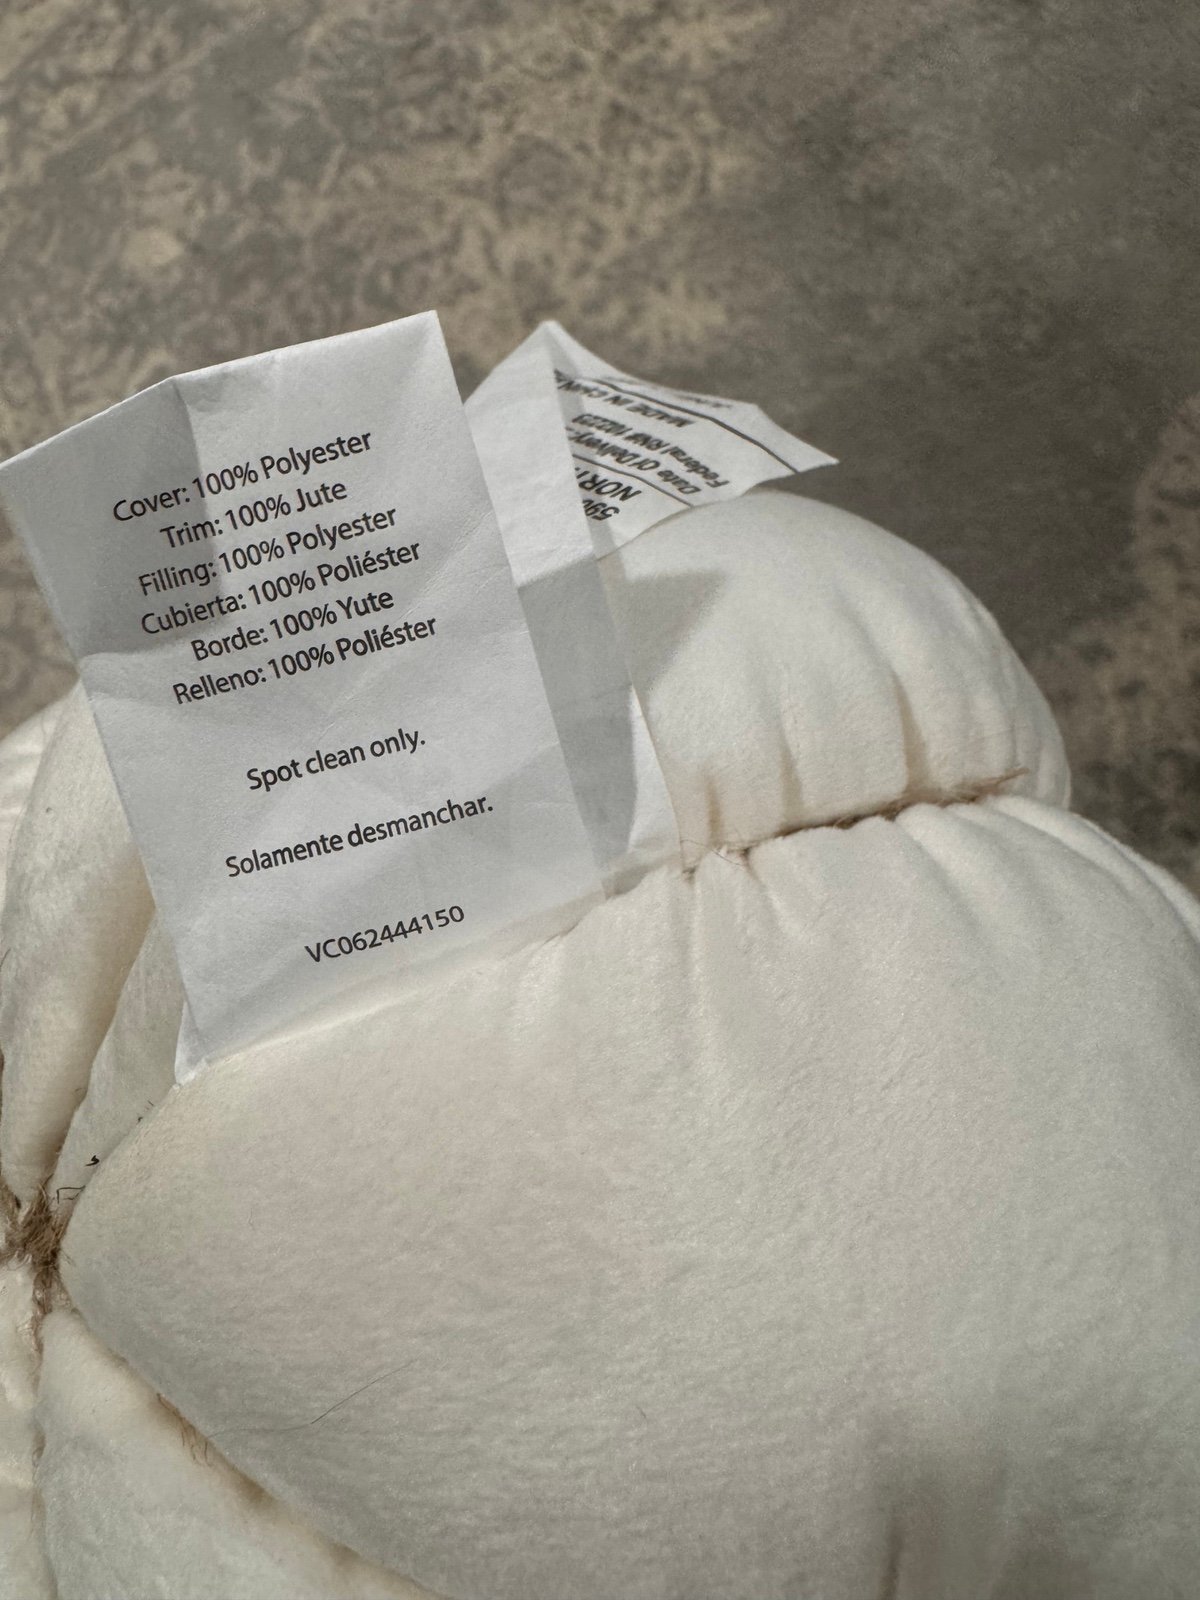 Cover: 100% Polyester
Trim: 100% Jute
Filling: 100% Polyester
Cubierta: 100% Poliéster
Borde: 100% Yute
Relleno: 100% Poliéster
Spot clean only.
Solamente desmanchar.
VC062444150
NOR
Date Of Delivery:
Federal RN#
MADE IN